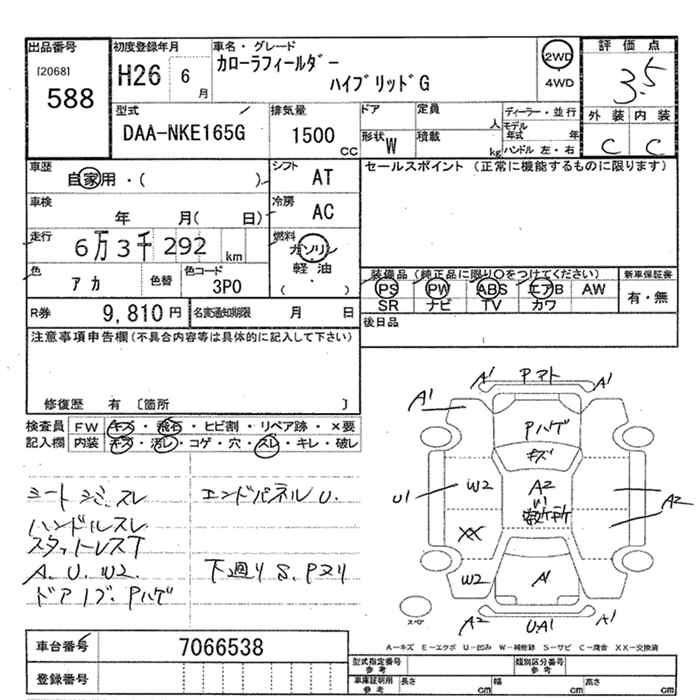 出品番号
[2068]
588
初度登録年月
H26 6月
車名・グレード
カローラフィールダー
ハイブリッドG
2WD
4WD
評価点
3.5
外装 内装
C C
型式
DAA-NKE165G
排気量
1500 CC
ドア
定員 人
形状 W
積載 kg
ディーラー・並行
モデル年式 年
ハンドル 左・右
車歴
自家用・( )
シフト
AT
セールスポイント (正常に機能するものに限ります)
車検
年 月( 日)
冷房
AC
走行
6万3千292 km
燃料
ガソリン
軽油
( ・ )
色
アカ
色替
色コード
3P0
装備品(純正品に限り○をつけてください)
新車保証書
PS PW ABS エアB AW
有・無
SR ナビ TV カワ
R券
9,810円
名変通知期限 月 日
後日品
注意事項申告欄(不具合内容等は具体的に記入して下さい)
修復歴 有 〔箇所 〕
検査員
記入欄
FW キズ・飛石・ヒビ割・リペア跡・×要
内装 キズ・汚レ・コゲ・穴・スレ・キレ・破レ
シートシミ、スレ
ハンドルスレ
スタットレスT
A. U. W2.
ドアノブ、Pハゲ
エンドパネルU.
下廻りS、Pヌリ
A1
A1
A1
Pハゲ
キズ
U1
W2
A2
U1
A2
XX
W2
A1
スペア
A2
U.A1
A1
A-キズ E-エクボ U-凹み W-補修跡 S-サビ C-腐食 XX-交換済
車台番号
7066538
登録番号
型式指定番号
参考
類別区分番号
参考
車庫証明用
参考
長さ cm
幅 cm
高さ cm